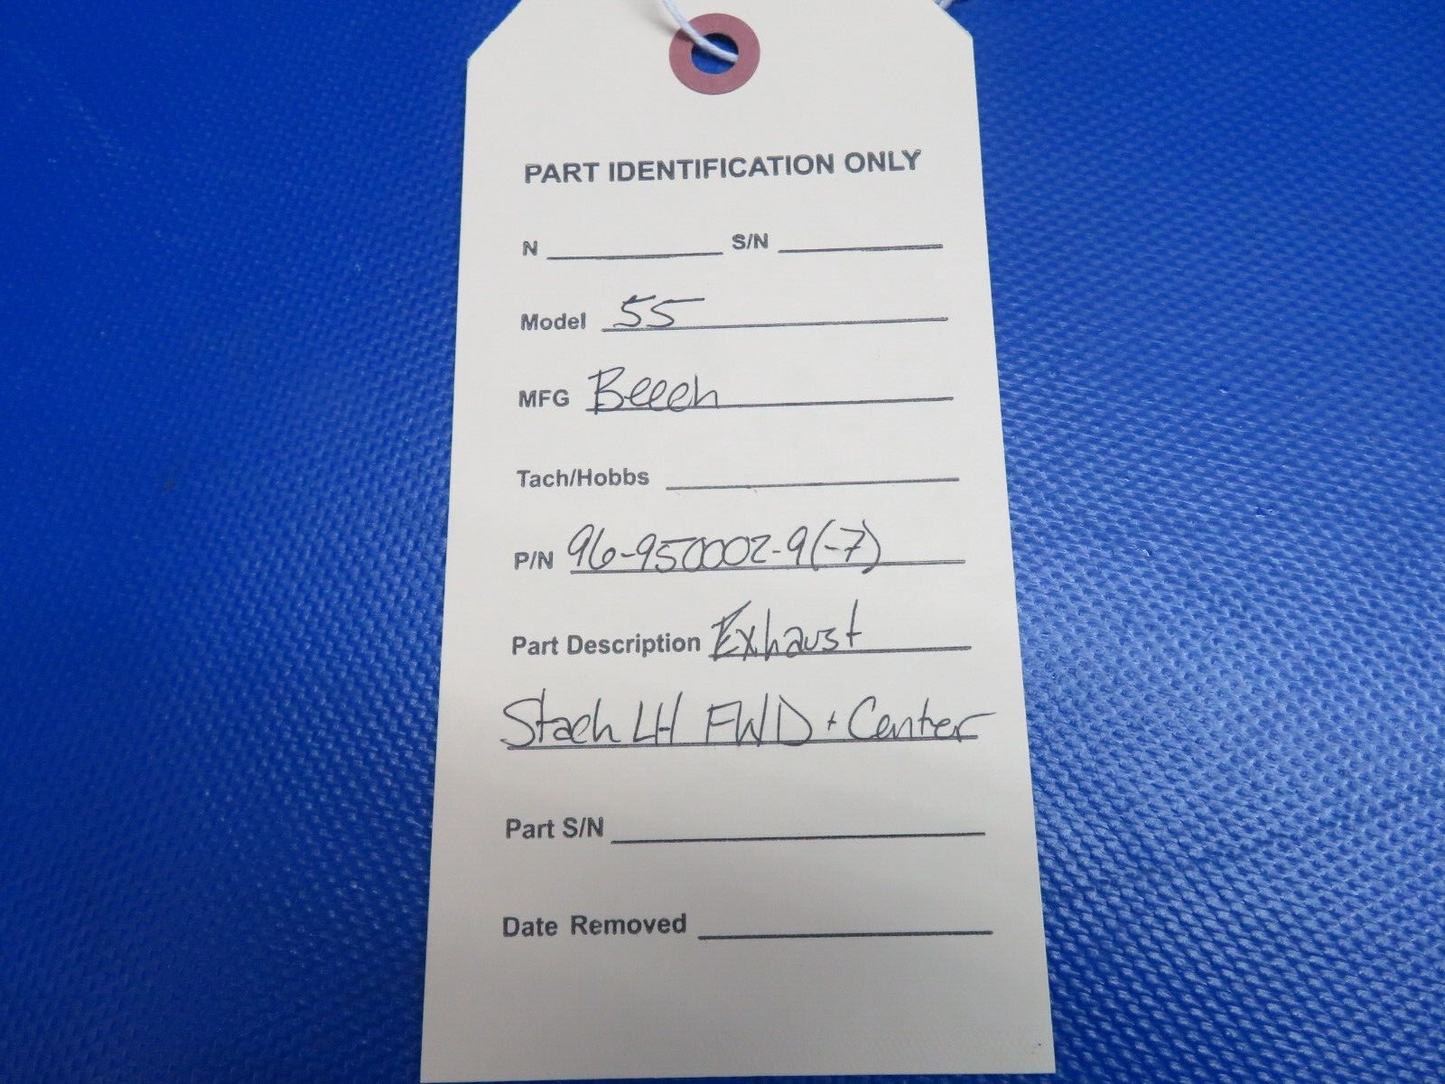 PART IDENTIFICATION ONLY
N S/N
Model 55
MFG Beech
Tach/Hobbs
P/N 96-950002-9(-7)
Part Description Exhaust
Stack LH FWD + Center
Part S/N
Date Removed